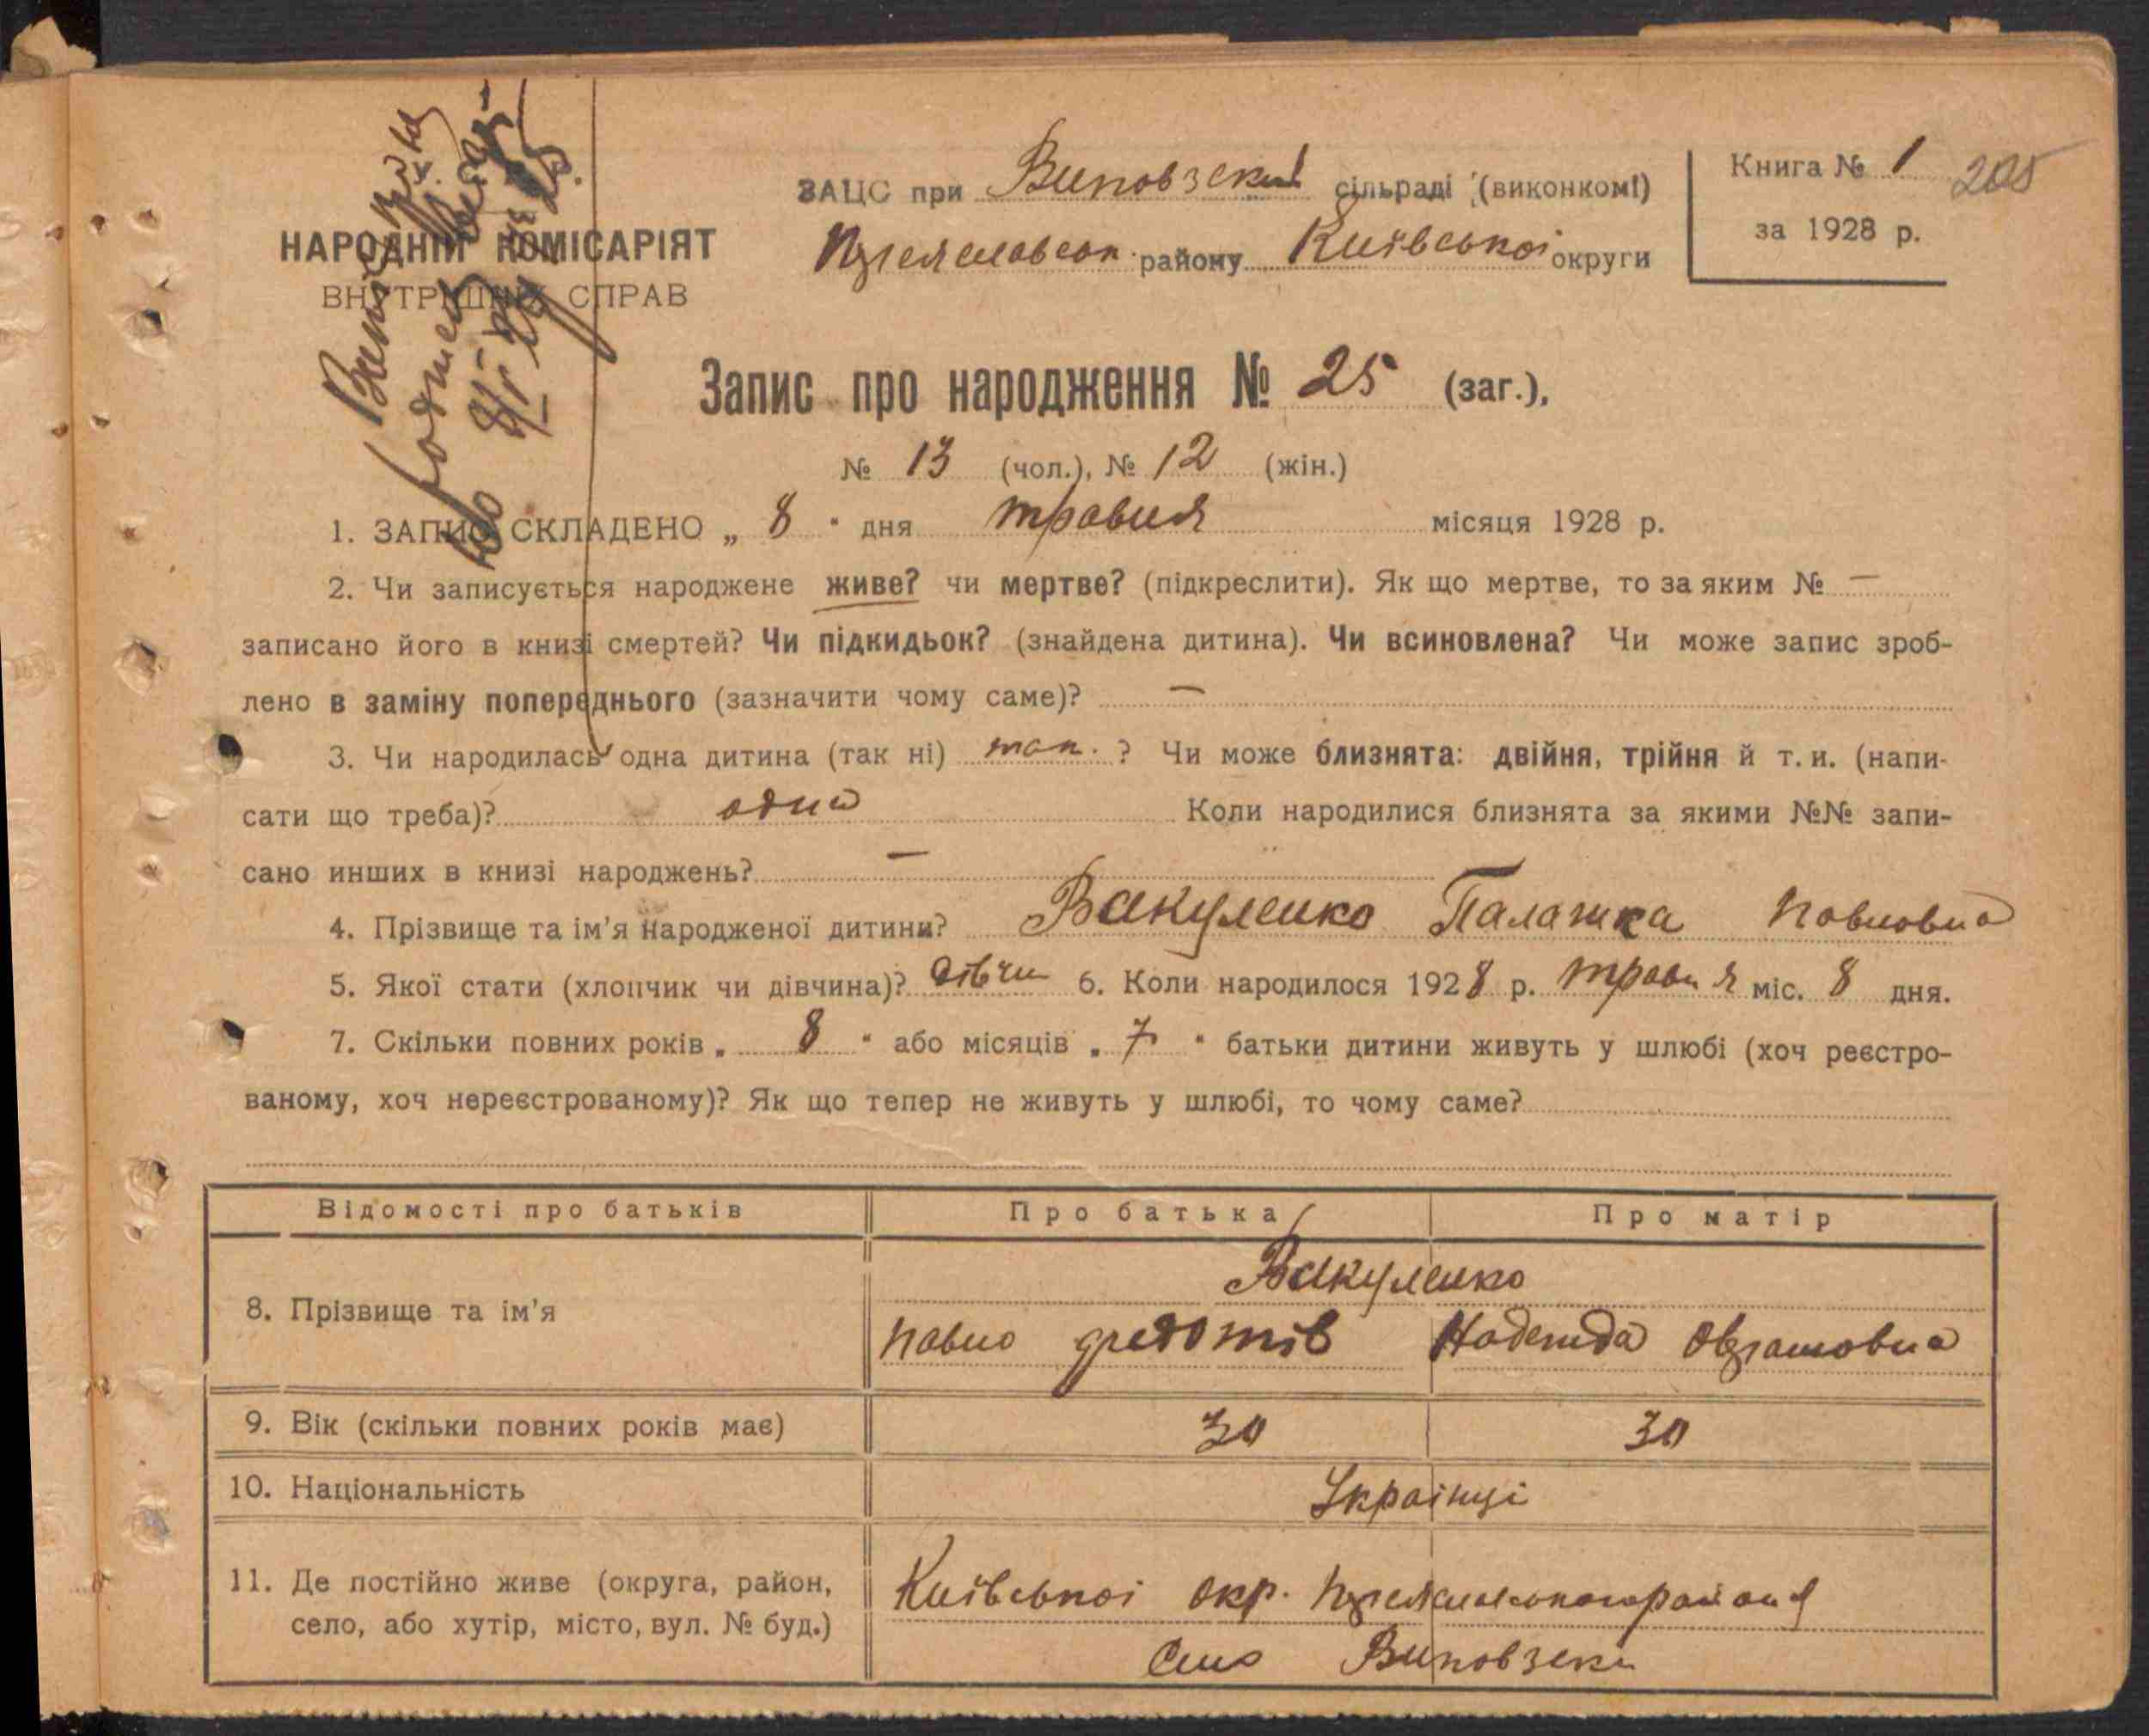 ЗАЦС при Виповзский сільраді (виконкомі)
Книга № 1 205
НАРОДНІЙ КОМІСАРІЯТ
Переяславськ. району Київської округи
за 1928 р.
ВНУТРІШНІХ СПРАВ
Запис про народження № 25 (заг.),
№ 13 (чол.), № 12 (жін.)
1. ЗАПИС СКЛАДЕНО „ 8 " дня травня місяця 1928 р.
2. Чи записується народжене живе? чи мертве? (підкреслити). Як що мертве, то за яким № —
записано його в книзі смертей? Чи підкидьок? (знайдена дитина). Чи всиновлена? Чи може запис зроб-
лено в заміну попереднього (зазначити чому саме)? —
3. Чи народилась одна дитина (так ні) так. ? Чи може близнята: двійня, трійня й т. и. (напи-
сати що треба)? одна Коли народилися близнята за якими №№ запи-
сано инших в книзі народжень? —
4. Прізвище та ім'я народженої дитини? Вакуленко Палажка Павловна
5. Якої стати (хлопчик чи дівчина)? дівчи 6. Коли народилося 1928 р. травня міс. 8 дня.
7. Скільки повних років „ 8 " або місяців „ 7 " батьки дитини живуть у шлюбі (хоч реєстро-
ваному, хоч нереєстрованому)? Як що тепер не живуть у шлюбі, то чому саме?
Відомості про батьків Про батька Про матір
Вакуленко
8. Прізвище та ім'я
Павло Федотів Надежда
9. Вік (скільки повних років має) 30 30
10. Національність Українці
11. Де постійно живе (округа, район, Київської окр. района
село, або хутір, місто, вул. № буд.)
Село Виповзски